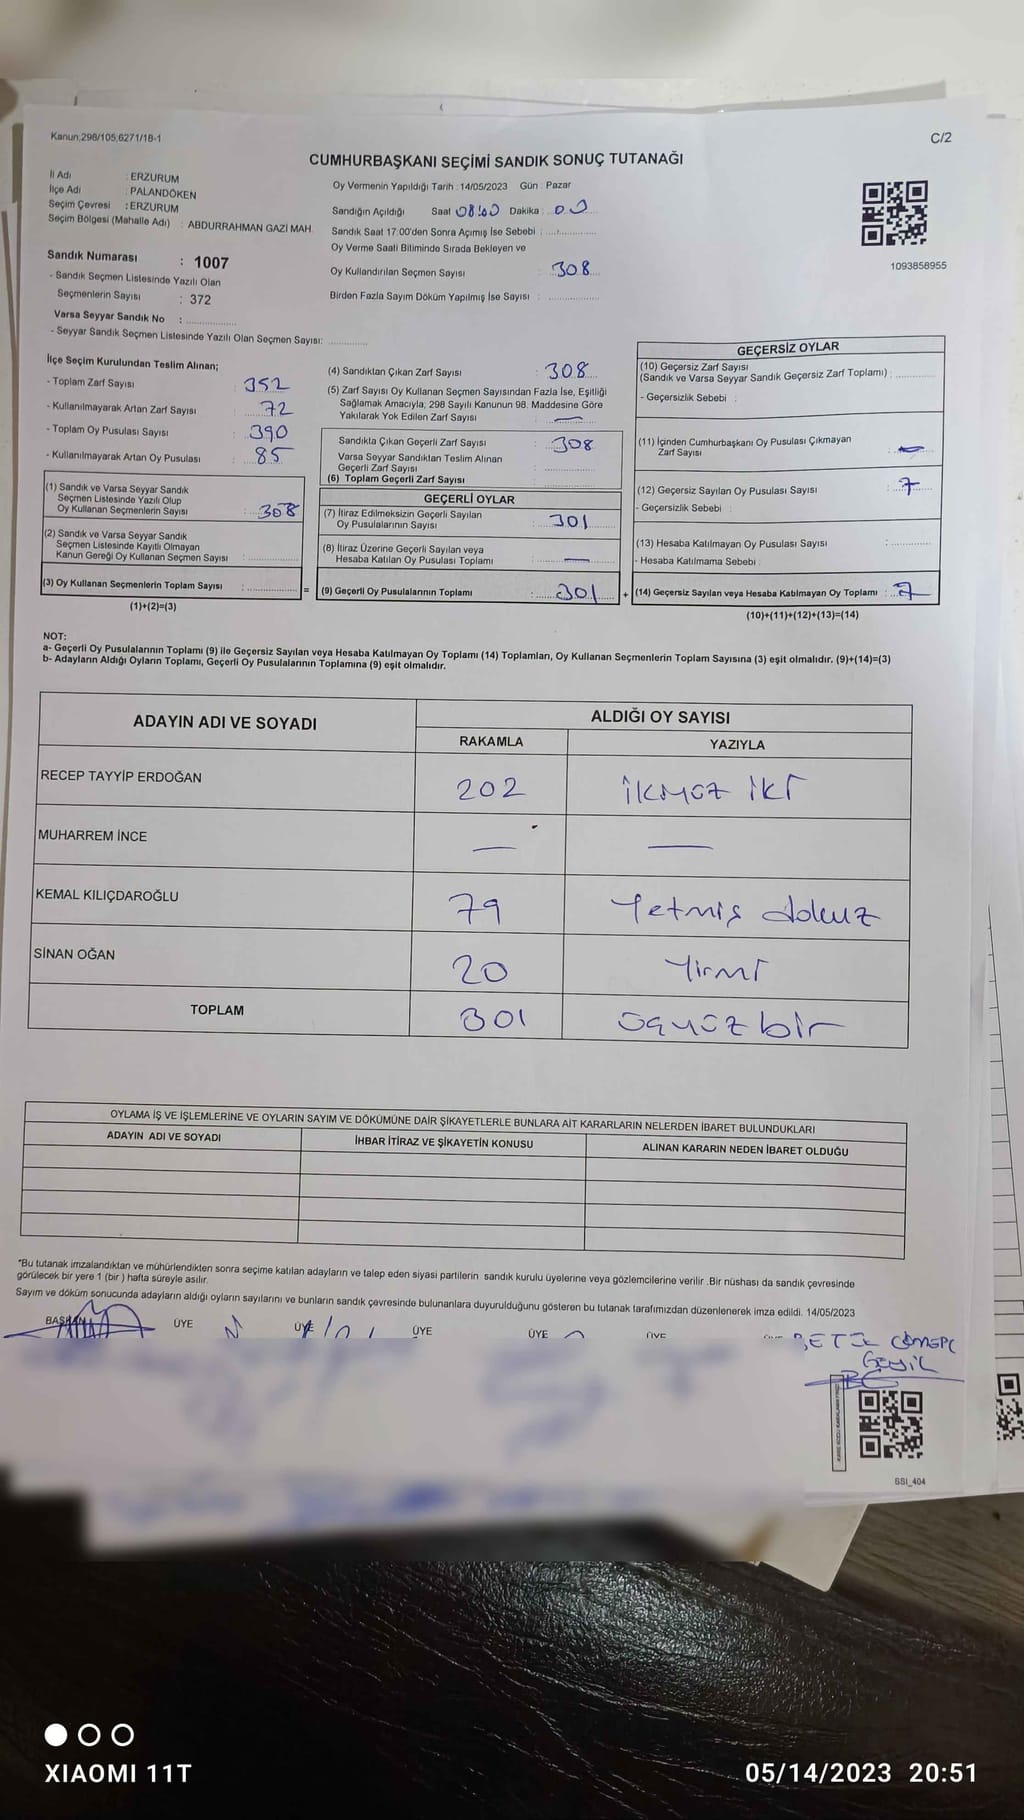 Kanun,298/105,6271/18-1
C/2
CUMHURBAŞKANI SEÇİMİ SANDIK SONUÇ TUTANAĞI
İl Adı : ERZURUM
İlçe Adı : PALANDÖKEN
Seçim Çevresi : ERZURUM
Seçim Bölgesi (Mahalle Adı) : ABDURRAHMAN GAZİ MAH.
Sandık Numarası : 1007
- Sandık Seçmen Listesinde Yazılı Olan
Seçmenlerin Sayısı : 372
Varsa Seyyar Sandık No :
- Seyyar Sandık Seçmen Listesinde Yazılı Olan Seçmen Sayısı:
Oy Vermenin Yapıldığı Tarih : 14/05/2023 Gün : Pazar
Sandığın Açıldığı Saat 08:00 Dakika : 00
Sandık Saat 17:00'den Sonra Açımış İse Sebebi :
Oy Verme Saati Bitiminde Sırada Bekleyen ve
Oy Kullandırılan Seçmen Sayısı : 308
Birden Fazla Sayım Döküm Yapılmış İse Sayısı :
1093858955
İlçe Seçim Kurulundan Teslim Alınan;
- Toplam Zarf Sayısı : 352
- Kullanılmayarak Artan Zarf Sayısı : 72
- Toplam Oy Pusulası Sayısı : 390
- Kullanılmayarak Artan Oy Pusulası : 85
(1) Sandık ve Varsa Seyyar Sandık
Seçmen Listesinde Yazılı Olup
Oy Kullanan Seçmenlerin Sayısı : 308
(2) Sandık ve Varsa Seyyar Sandık
Seçmen Listesinde Kayıtlı Olmayan
Kanun Gereği Oy Kullanan Seçmen Sayısı :
(3) Oy Kullanan Seçmenlerin Toplam Sayısı : =
(1)+(2)=(3)
(4) Sandıktan Çıkan Zarf Sayısı : 308
(5) Zarf Sayısı Oy Kullanan Seçmen Sayısından Fazla İse, Eşitliği
Sağlamak Amacıyla; 298 Sayılı Kanunun 98. Maddesine Göre
Yakılarak Yok Edilen Zarf Sayısı : —
Sandıkta Çıkan Geçerli Zarf Sayısı : 308
Varsa Seyyar Sandıktan Teslim Alınan
Geçerli Zarf Sayısı :
(6) Toplam Geçerli Zarf Sayısı :
GEÇERLİ OYLAR
(7) İtiraz Edilmeksizin Geçerli Sayılan
Oy Pusulalarının Sayısı : 301
(8) İtiraz Üzerine Geçerli Sayılan veya
Hesaba Katılan Oy Pusulası Toplamı : —
(9) Geçerli Oy Pusulalarının Toplamı : 301 +
GEÇERSİZ OYLAR
(10) Geçersiz Zarf Sayısı
(Sandık ve Varsa Seyyar Sandık Geçersiz Zarf Toplamı) :
- Geçersizlik Sebebi :
(11) İçinden Cumhurbaşkanı Oy Pusulası Çıkmayan
Zarf Sayısı : —
(12) Geçersiz Sayılan Oy Pusulası Sayısı : 7
- Geçersizlik Sebebi :
(13) Hesaba Katılmayan Oy Pusulası Sayısı :
- Hesaba Katılmama Sebebi :
(14) Geçersiz Sayılan veya Hesaba Katılmayan Oy Toplamı : 7
(10)+(11)+(12)+(13)=(14)
NOT:
a- Geçerli Oy Pusulalarının Toplamı (9) ile Geçersiz Sayılan veya Hesaba Katılmayan Oy Toplamı (14) Toplamları, Oy Kullanan Seçmenlerin Toplam Sayısına (3) eşit olmalıdır. (9)+(14)=(3)
b- Adayların Aldığı Oyların Toplamı, Geçerli Oy Pusulalarının Toplamına (9) eşit olmalıdır.
ADAYIN ADI VE SOYADI
ALDIĞI OY SAYISI
RAKAMLA YAZIYLA
RECEP TAYYİP ERDOĞAN 202 ikiyüz iki
MUHARREM İNCE — —
KEMAL KILIÇDAROĞLU 79 Yetmiş dokuz
SİNAN OĞAN 20 Yirmi
TOPLAM 301 üçyüz bir
OYLAMA İŞ VE İŞLEMLERİNE VE OYLARIN SAYIM VE DÖKÜMÜNE DAİR ŞİKAYETLERLE BUNLARA AİT KARARLARIN NELERDEN İBARET BULUNDUKLARI
ADAYIN ADI VE SOYADI İHBAR İTİRAZ VE ŞİKAYETİN KONUSU ALINAN KARARIN NEDEN İBARET OLDUĞU
*Bu tutanak imzalandıktan ve mühürlendikten sonra seçime katılan adayların ve talep eden siyasi partilerin sandık kurulu üyelerine veya gözlemcilerine verilir .Bir nüshası da sandık çevresinde
görülecek bir yere 1 (bir ) hafta süreyle asılır.
Sayım ve döküm sonucunda adayların aldığı oyların sayılarını ve bunların sandık çevresinde bulunanlara duyurulduğunu gösteren bu tutanak tarafımızdan düzenlenerek imza edildi. 14/05/2023
BAŞKAN ÜYE ÜYE ÜYE ÜYE ÜYE
SSI_404
XIAOMI 11T
05/14/2023 20:51